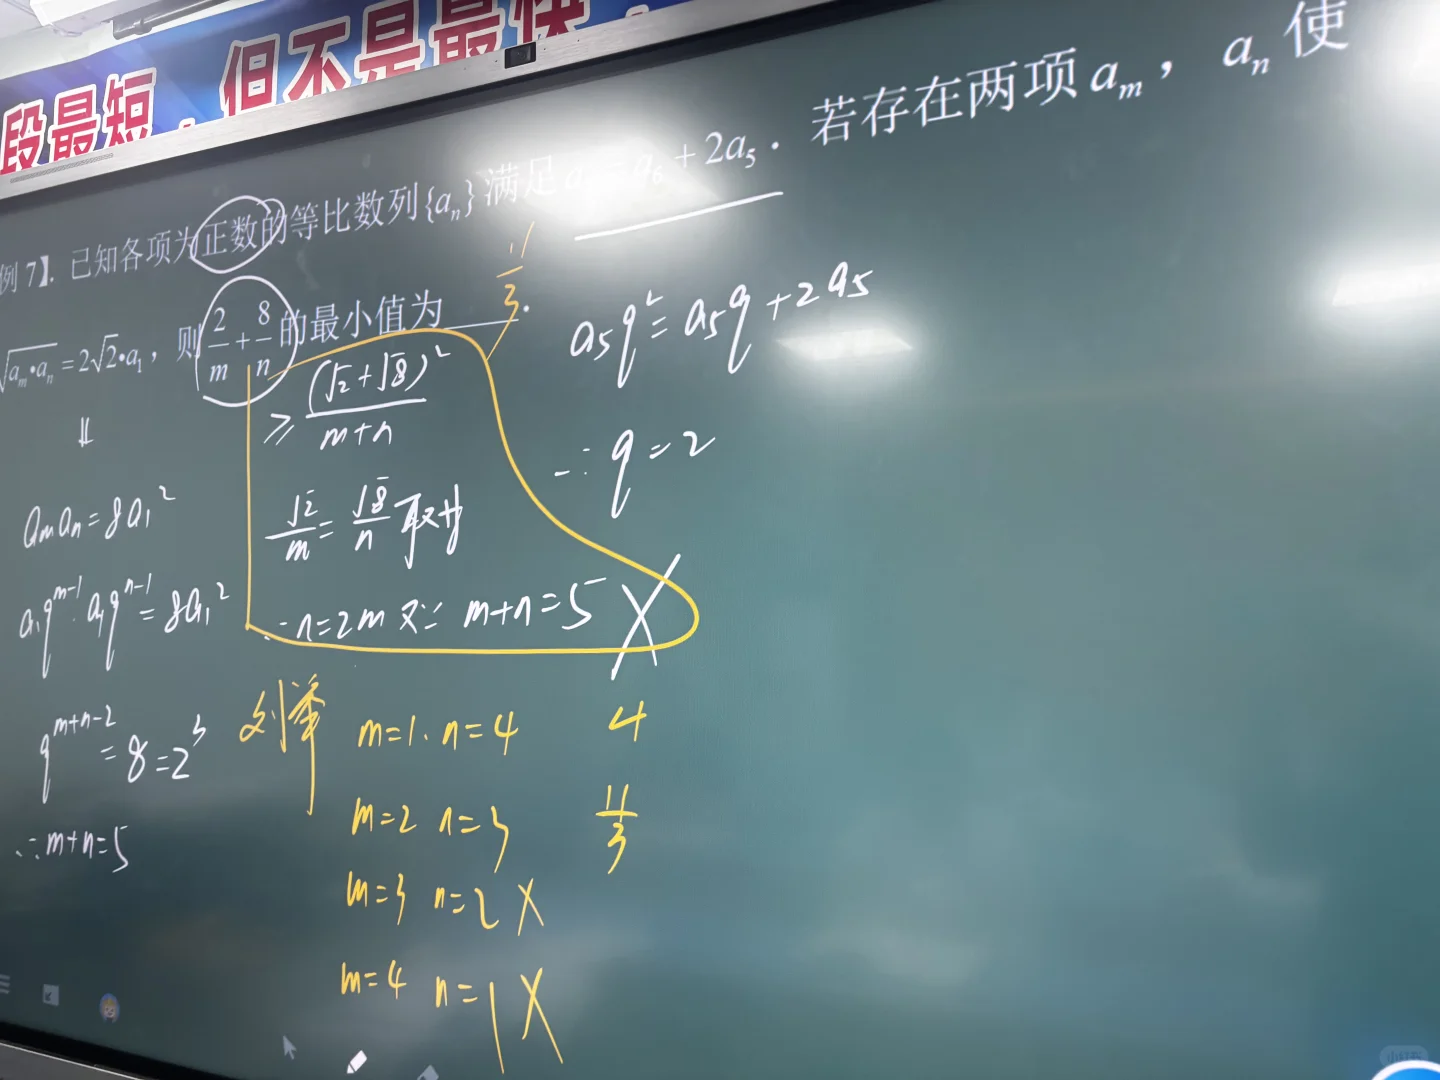 段最短，但不是最快，
例 7】. 已知各项为正数的等比数列{aₙ}满足 a₆ + 2a₅ . 若存在两项 aₘ， aₙ 使
√(aₘ•aₙ) = 2√2•a₁， 则 2/m + 8/n 的最小值为______.
11/3
a₅q² = a₅q + 2a₅
∴ q = 2
⇓
aₘaₙ = 8a₁²
a₁q^(m-1) · a₁q^(n-1) = 8a₁²
q^(m+n-2) = 8 = 2³
∴ m+n=5
≥ (√2+√8)²/(m+n)
√2/m = √8/n 取
∴ n=2m 又∵ m+n=5 X
列举
m=1. n=4 4
m=2 n=3 11/3
m=3 n=2 X
m=4 n=1 X
小红书